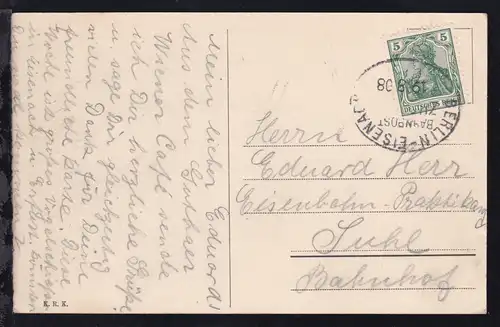 Mein lieber Eduard!
Aus dem
Wiener Café sende
ich Dir herzliche Grüße
u. sage Dir gleichzeitig
vielen Dank für Deine
freundliche Karte. Diese
Woche ist großes
in Eisenach u.
K. R. K.
5 5
DEUTSCHES REICH
BERLIN-EISENACH
BAHNPOST
08
Herrn
Eduard Herr
Eisenbahn-Praktikant
Suhl
Bahnhof